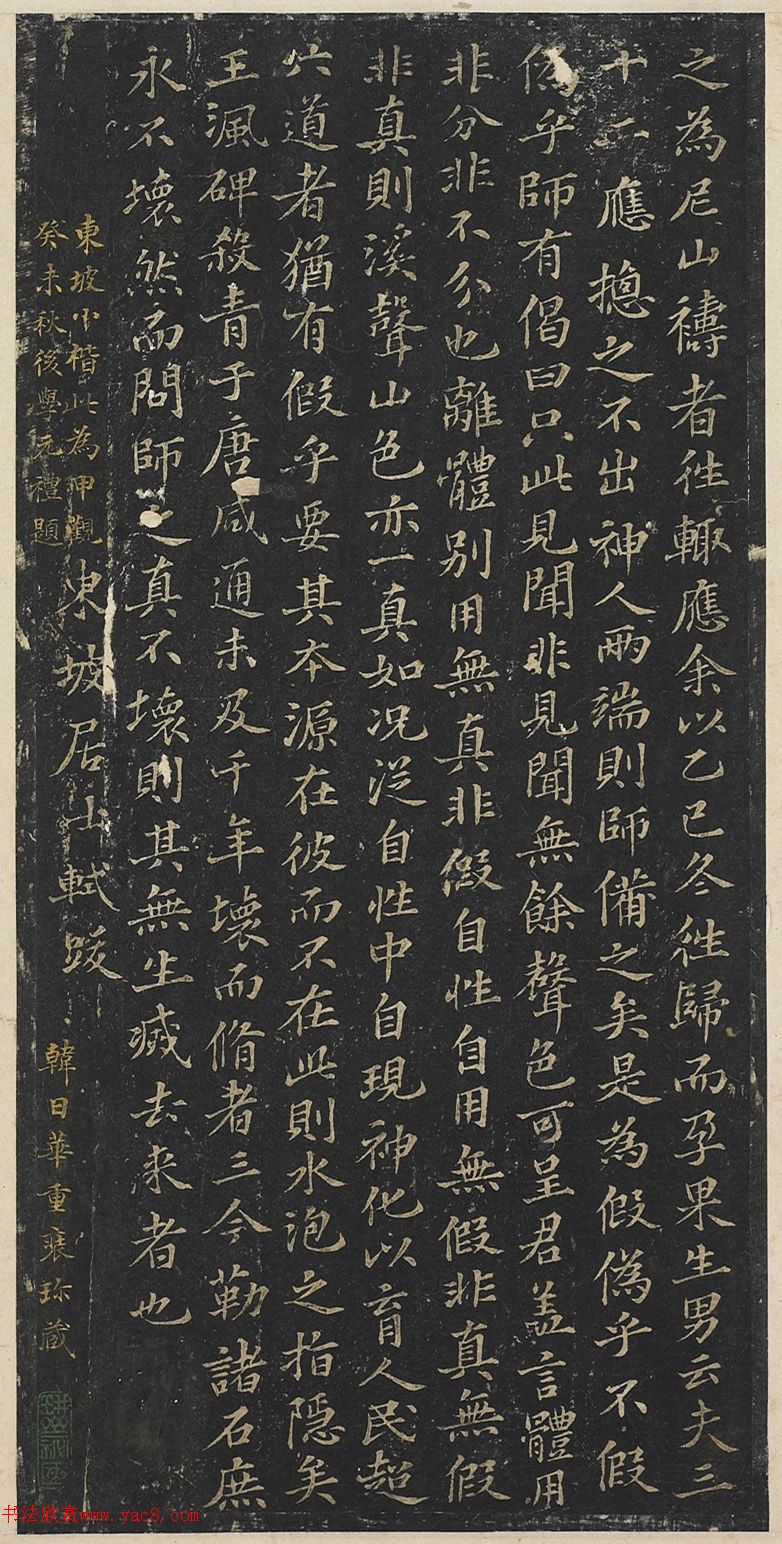 之為尼山禱者徃輒應余以乙巳冬徃歸而孕果生男云夫三
十二應摠之不出神人兩端則師備之矣是為假偽乎不假
偽乎師有偈曰只此見聞非見聞無餘聲色可呈君盖言體用
非分非不分也離體別用無真非假自性自用無假非真無假
非真則溪聲山色亦一真如况從自性中自現神化以育人民超
六道者猶有假乎要其本源在彼而不在此則水泡之指隱矣
王渢碑殺青于唐咸通未及千年壞而脩者三今勒諸石庶
永不壞然而問師之真不壞則其無生滅去來者也
東坡居士軾跋
東坡小楷此為甲觀
癸未秋後學元禮題
韓日華重裝珎藏
书法欣赏www.yac8.com